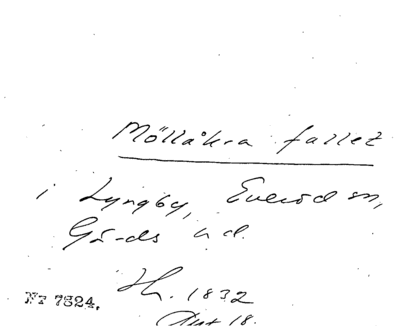 Möllåkra fallet
i Lyngby, Everöd sn,
Gärds hd.
Hn. 1832
Nr 7324.
18.